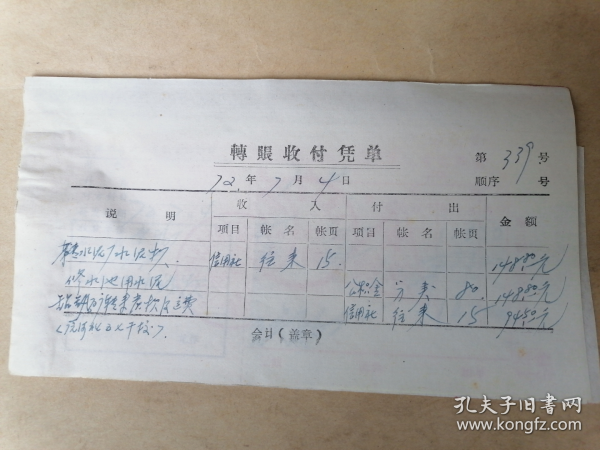 轉賬收付凭单
第 339 号
72 年 7 月 4 日
顺序 号
说 明 收 入 付 出 金 额
项目 帐 名 帐页 项目 帐 名 帐页
水泥厂水泥款 信用社 往来 15. 148.80元
修水池用水泥 公积金 分类 80. 148.80元
信用社 往来 15 94.50元
会计(盖章)
孔夫子旧书网
www.kongfz.com